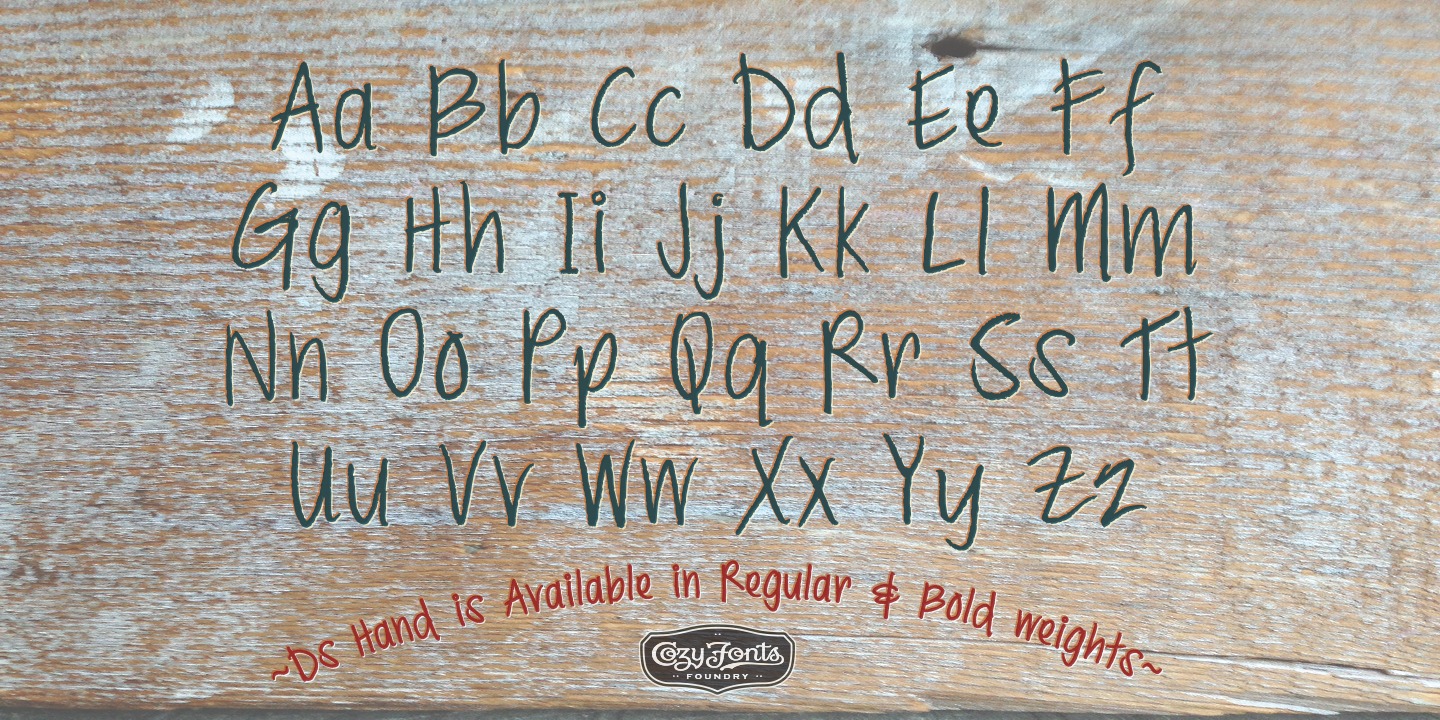 Aa Bb Cc Dd Ee Ff
Gg Hh Ii Jj Kk Ll Mm
Nn Oo Pp Qq Rr Ss Tt
Uu Vv Ww Xx Yy Zz
~Ds Hand is Available in Regular & Bold weights~
CozyFonts
FOUNDRY